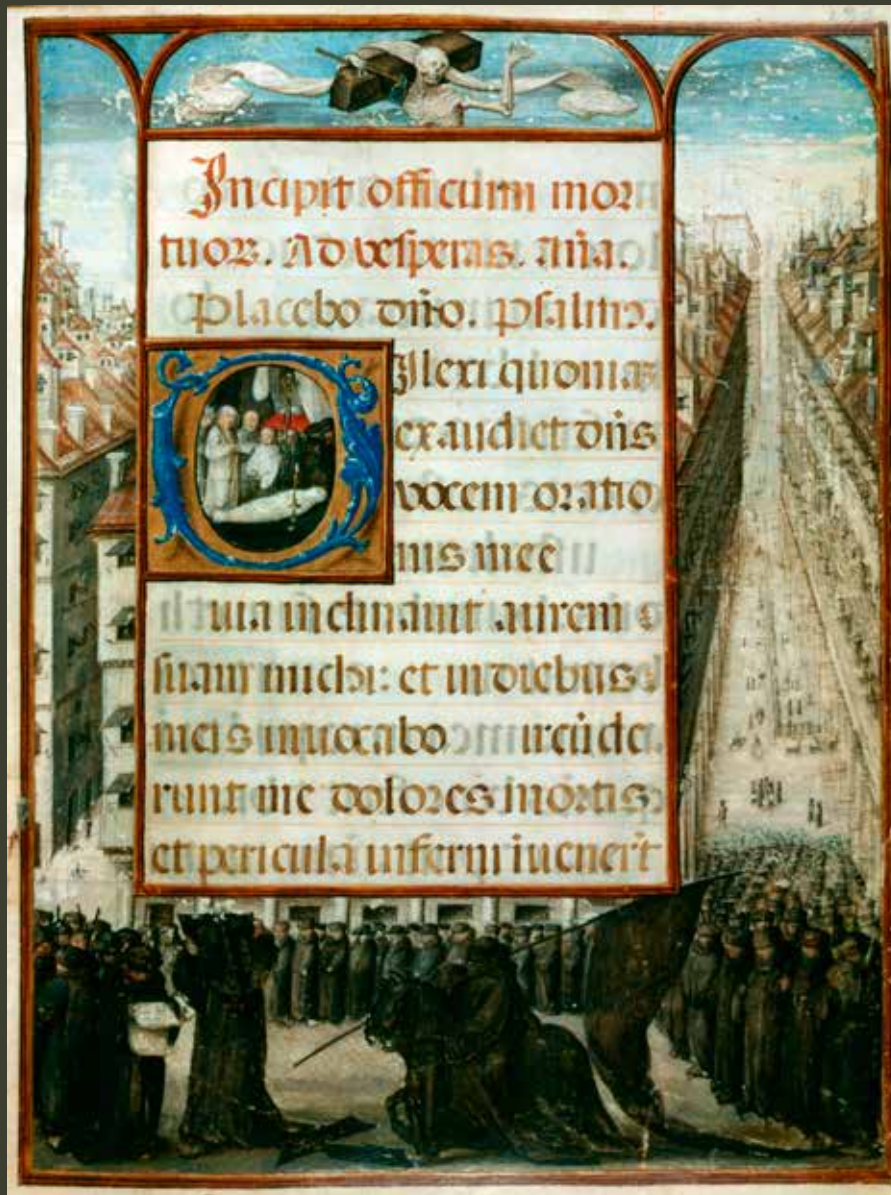 Incipit officium mor
tuor. Ad vesperas. Aña.
Placebo dño. Psalmꝰ.
Dilexi quoniaꝫ
exaudiet dñs
vocem oratio
nis mee
uia inclinavit aurem
suam michi: et in diebus
meis invocabo ircũde
runt me dolores mortis
et pericula inferni ĩvenerũt